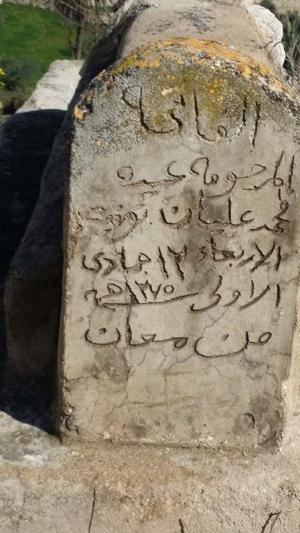 الفاتحة
المرحومة عبده
محمد عليان توفيت
الاربعاء ١٢ جمادى
الاولى سنة ١٣٧٥ هجريه
من معان